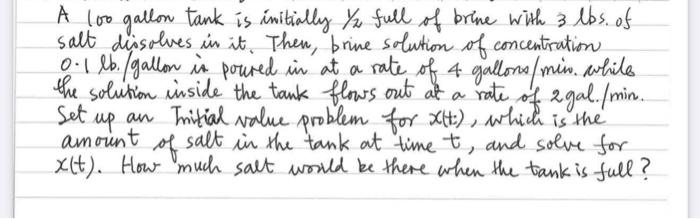 A 100 gallon tank is initially 1/2 full of brine with 3 lbs. of
salt dissolves in it. Then, brine solution of concentration
0.1 lb./gallon is poured in at a rate of 4 gallons/min. while
the solution inside the tank flows out at a rate of 2 gal./min.
Set up an Initial value problem for x(t), which is the
amount of salt in the tank at time t, and solve for
x(t). How much salt would be there when the tank is full?